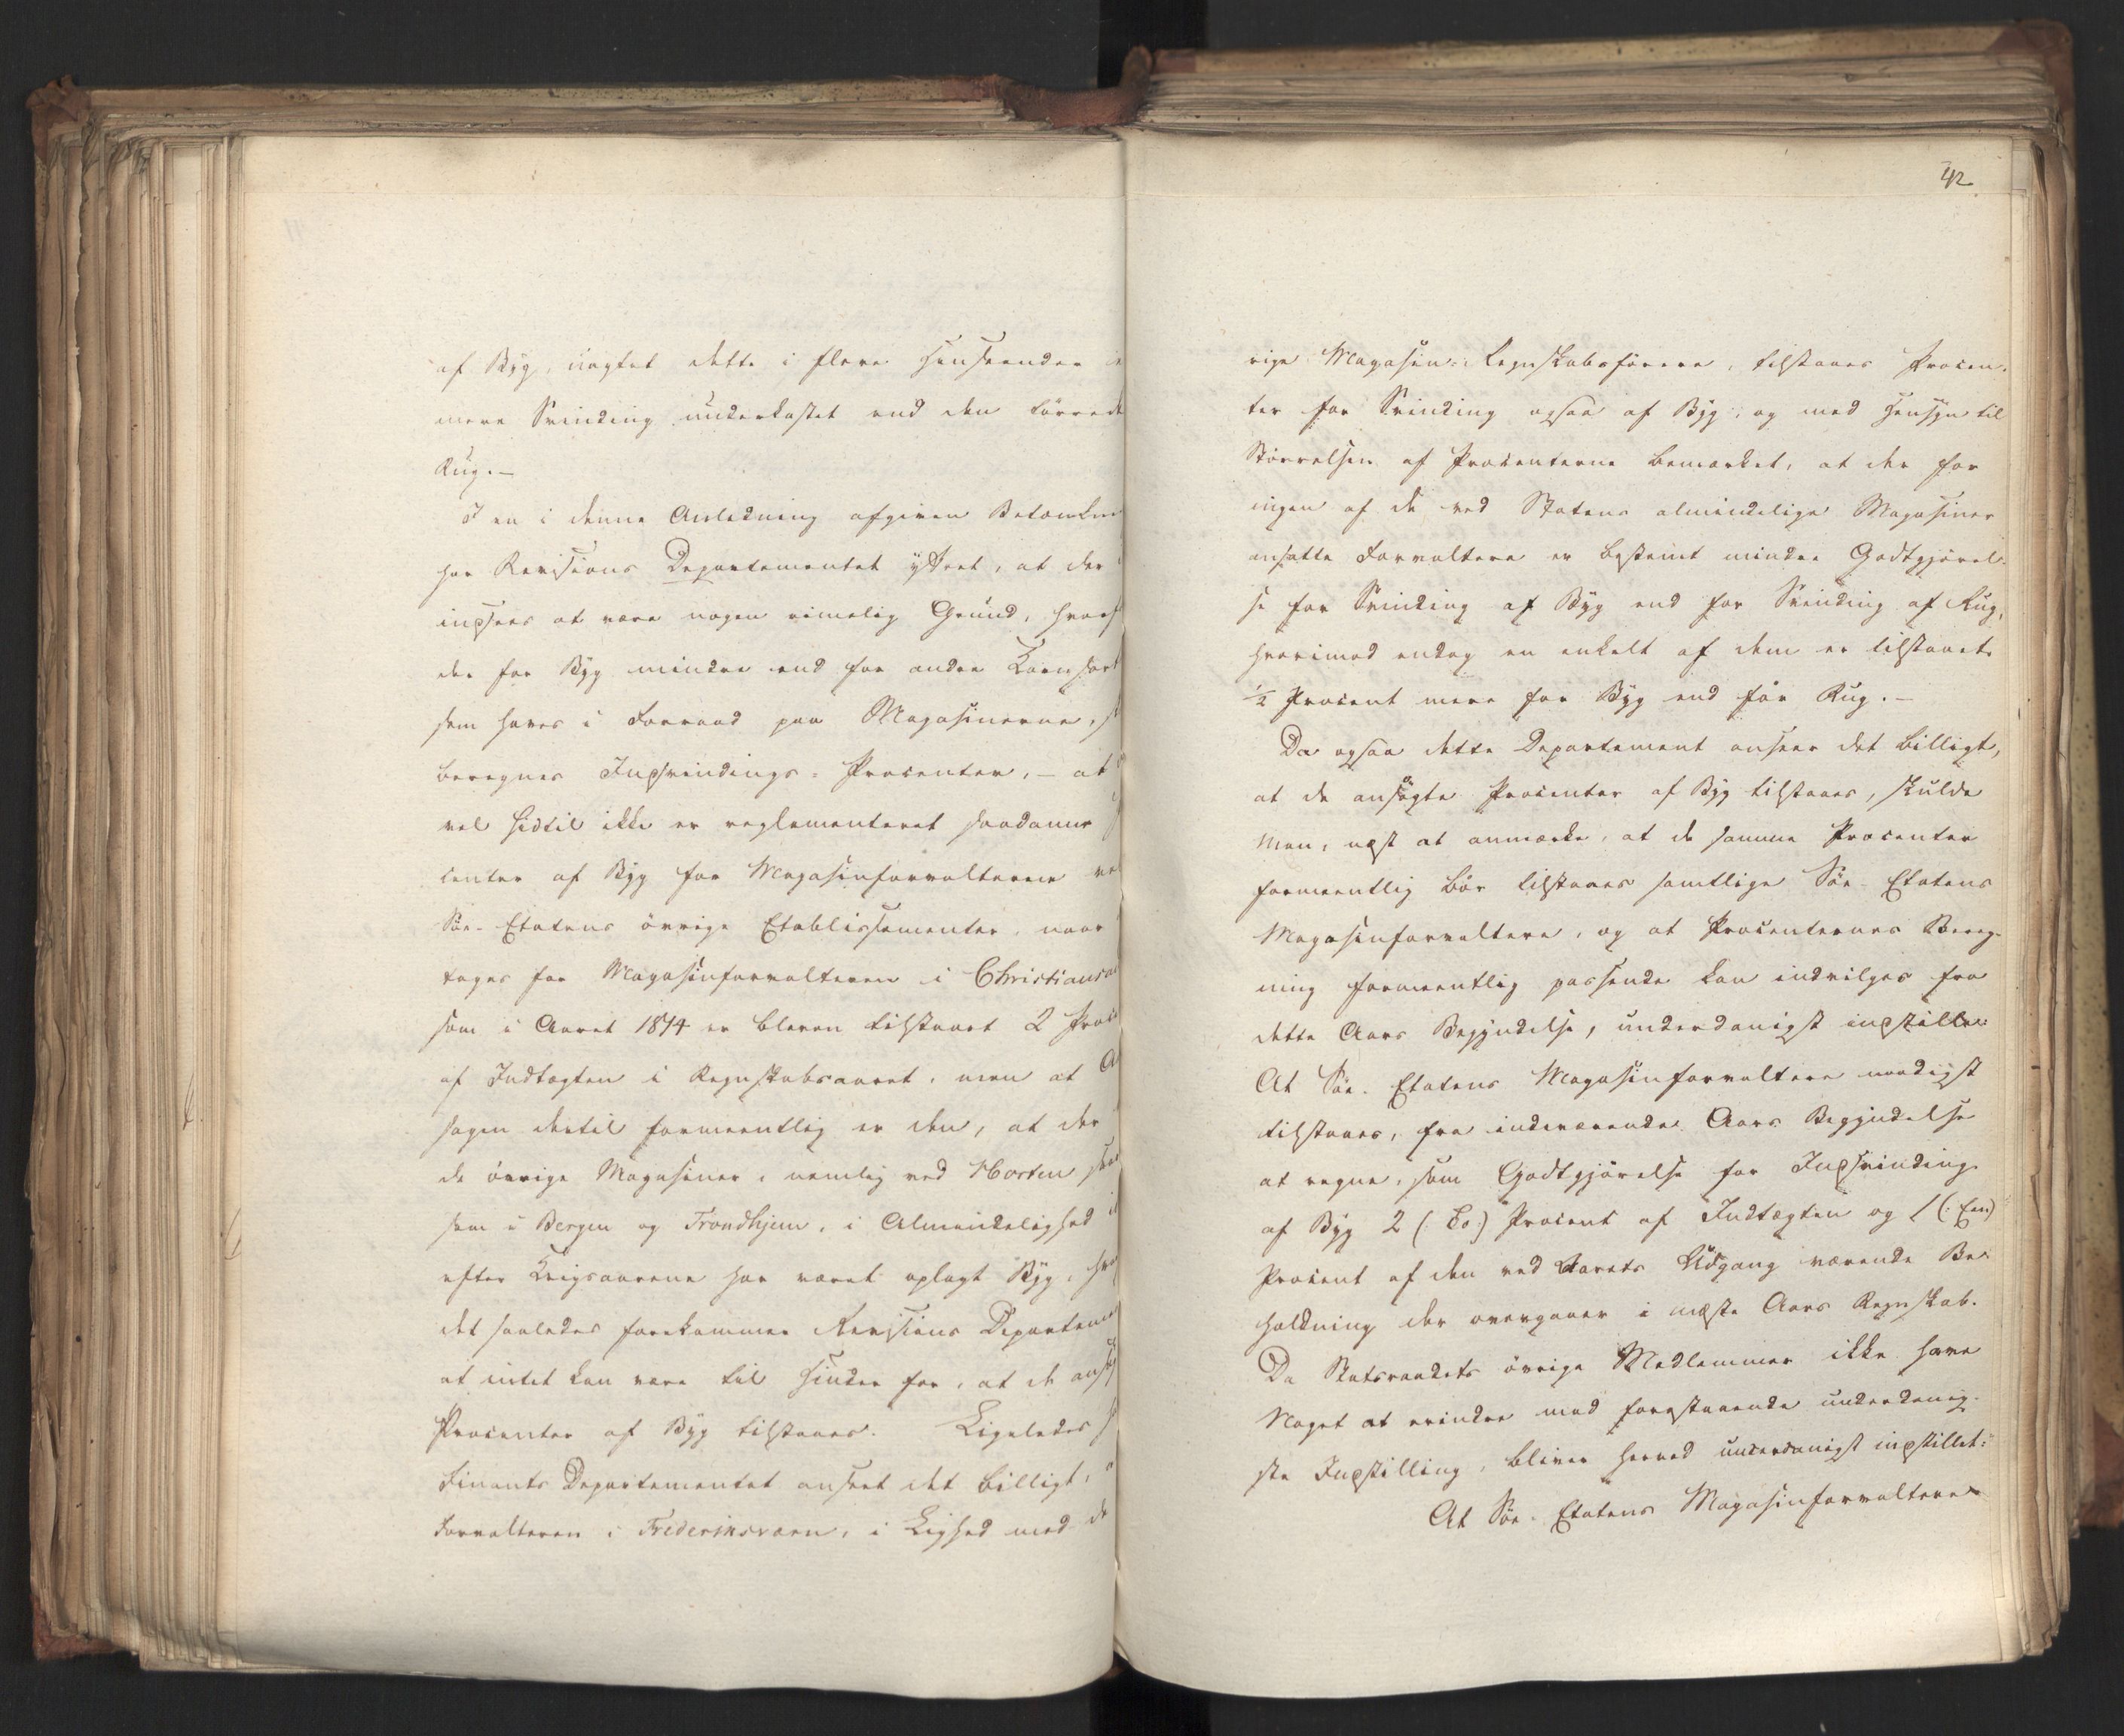 af Byg, uagtet dette i flere Henseender e
mere Svinding underkastet end den tørrede
Rug.—
I en i denne Anledning afgiven Betænkn
har Revisions Departementet yttret, at der
indsees at være nogen rimelig Grund, hvorf
der for Byg mindre end for andre Kornsort
som haves i Forraad paa Magasinerne,
beregnes Indsvindings-Procenter, — at
vel hidtil ikke er reglementeret saadanne
center af Byg for Magasinforvalterne ved
Søe-Etatens øvrige Etablissementer, naar
tages for Magasinforvalteren i Christiansa
som i Aaret 1814 er bleven tilstaaet 2 Proc
af Indtægten i Regnskabsaaret, men at A
sagen dertil formeentlig er den, at der
de øvrige Magasiner, nemlig ved Horten saa
som i Bergen og Trondhjem, i Almindelighed i
efter Krigsaarene har været oplagt Byg, hvo
det saaledes forekommer Revisions Departeme
at intet kan være til Hinder for, at de ansø
Procenter af Byg tilstaaes. Ligeledes h
Finants Departementet anseet det billigt, a
Forvalteren i Frederiksværn, i Lighed med de
42.
rige Magasin-Regnskabsførere, tilstaaes Procen-
ter for Svinding ogsaa af Byg, og med Hensyn til
Størrelsen af Procenterne bemærket, at der for
ingen af de ved Statens almindelige Magasiner
ansatte Forvaltere er bestemt mindre Godtgjørel-
se for Svinding af Byg end for Svinding af Rug,
hvorimod endog en enkelt af dem er tilstaaet
½ Procent mere for Byg end for Rug.—
Da ogsaa dette Departement anseer det billigt,
at de ansøgte Procenter af Byg tilstaaes, skulde
Man, næst at anmærke, at de samme Procenter
formeentlig bør tilstaaes samtlige Søe-Etatens
Magasinforvaltere, og at Procenternes Bereg-
ning formeentlig passende kan indvilges fra
dette Aars Begyndelse, underdanigst indstille:
At Søe-Etatens Magasinforvaltere naadigst
tilstaaes, fra indeværende Aars Begyndelse
at regne, som Godtgjørelse for Indsvinding
af Byg 2 (: to :) Procent af Indtægten og 1 (: Een :)
Procent af den ved Aarets Udgang værende Be-
holdning der overgaaer i næste Aars Regnskab.
Da Statsraadets øvrige Medlemmer ikke have
Noget at erindre mod forestaaende underdanig-
ste Indstilling, bliver herved underdanigst indstillet:
At Søe-Etatens Magasinforvaltere